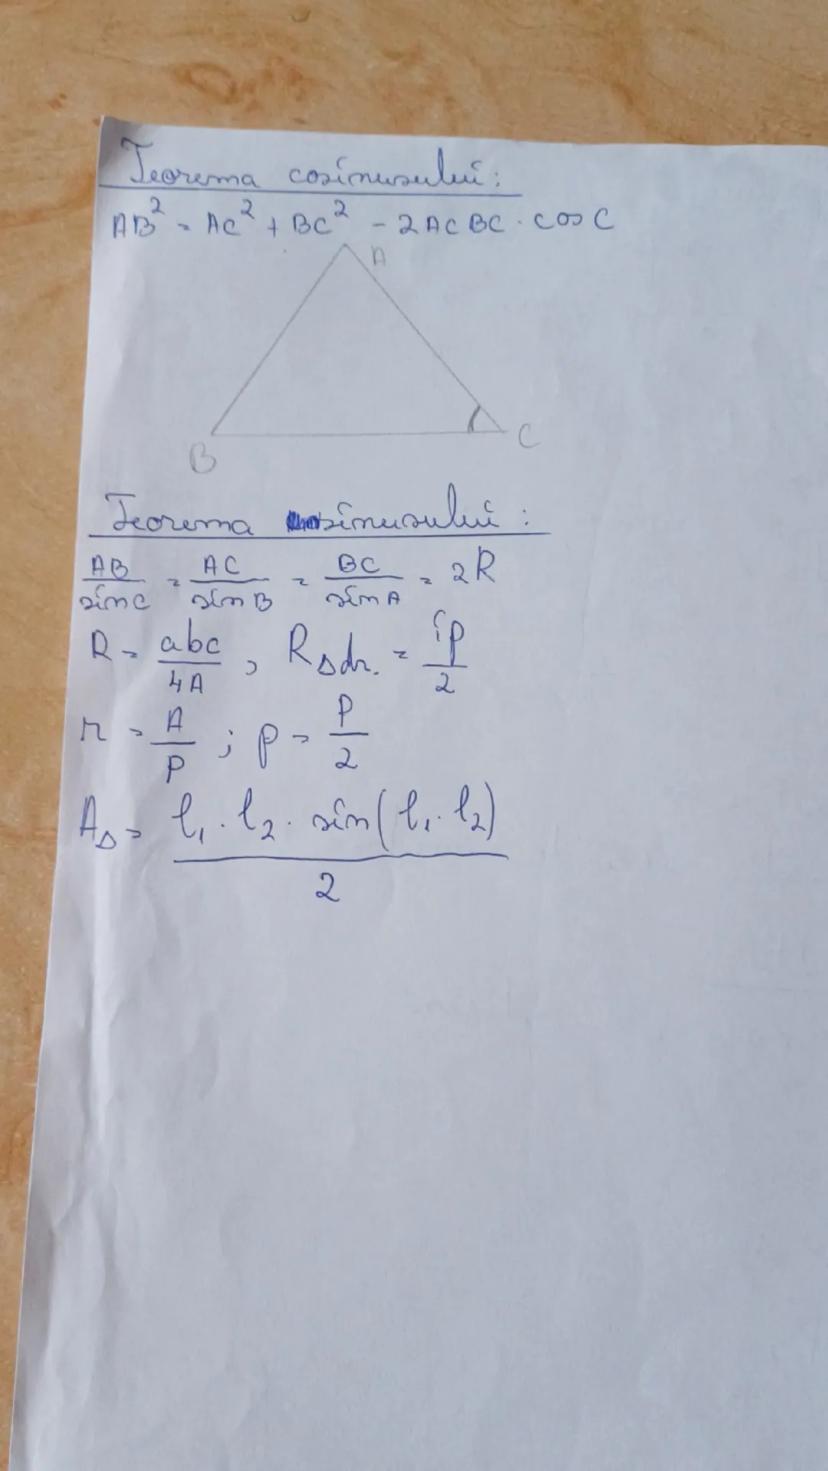 Teorema cosinusului:
AB² = AC² + BC² - 2ACBC · cos C
A
B
C
Teorema sinusului:
AB/sinC = AC/sinB = BC/sinA = 2R
R = abc/4A, RΔdr. = ip/2
r = A/p ; p = P/2
AΔ = l₁ · l₂ · sin(l₁ · l₂)/2